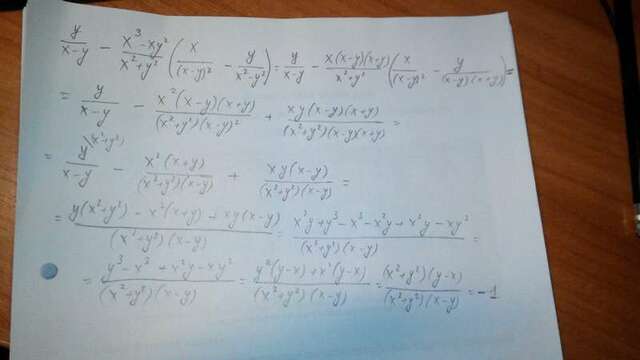 y/(x-y) - (x³-xy²)/(x²+y²) (x/(x-y)² - y/(x²-y²)) = y/(x-y) - x(x-y)(x+y)/(x²+y²) (x/(x-y)² - y/((x-y)(x+y))) =
= y/(x-y) - x²(x-y)(x+y)/((x²+y²)(x-y)²) + xy(x-y)(x+y)/((x²+y²)(x-y)(x+y)) =
= y\(x²+y²)/(x-y) - x²(x+y)/((x²+y²)(x-y)) + xy(x-y)/((x²+y²)(x-y)) =
= (y(x²+y²) - x²(x+y) + xy(x-y))/((x²+y²)(x-y)) = (x²y+y³-x³-x²y+x²y-xy²)/((x²+y²)(x-y)) =
= (y³-x³+x²y-xy²)/((x²+y²)(x-y)) = (y²(y-x)+x²(y-x))/((x²+y²)(x-y)) = (x²+y²)(y-x)/((x²+y²)(x-y)) = -1